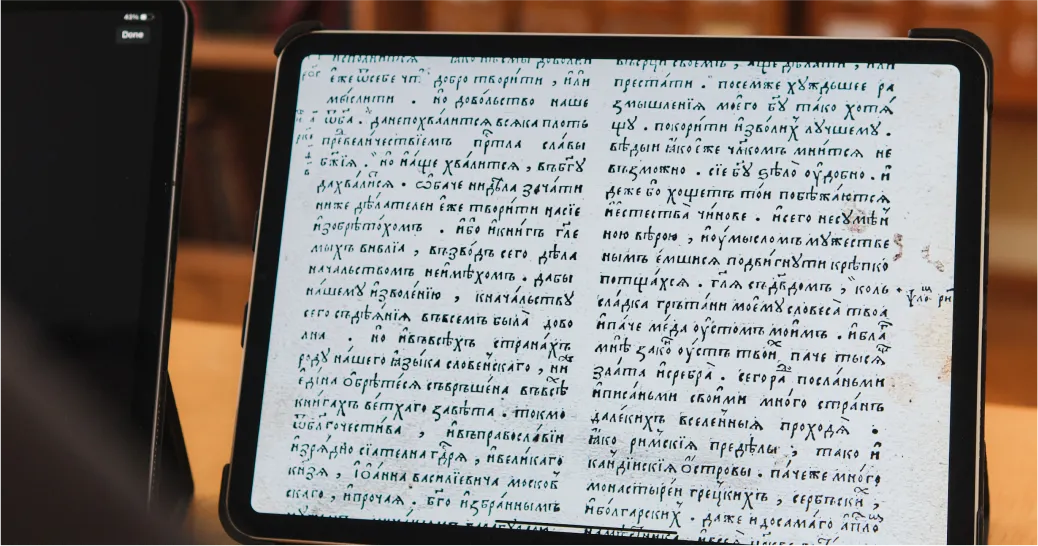 43%
Done
доволни
ѡ҆себе добро творити , и҆ли
мыслити . но довольство наше
ѿ б҃а . данепохвалится всѧка плоть
бж҃їѧ . но и҆аще хвалится , въбг҃у
дахвалисѧ .
ниже дѣлателен еже творити насїе
и҆зобрѣтохомъ . и҆бо и҆книгъ гл҃е
мыхъ вивлїа , възводъ сего дѣла
начальствомъ неи҆мѣхомъ . дабы
нашему и҆зволенїю , кначальству
сего съдѣѧнїѧ въвсемъ была дово
лна . но и҆въвсѣхъ странахъ
роду нашего ꙗ҆зыка словенскаго , ни
е҆дина ѡ҆брѣтесѧ съвръшена въвсѣ
книгахъ ветхаго завѣта . токмо
ѿ бл҃гочестива , и҆въправославїи
и҆зрѧдно сїателна гд҃рѧ , и҆великаго
кн҃зѧ , і҆ѡанна василїевича москов
скаго , и҆прочаѧ . бг҃о и҆збраннымъ
дѣлати , или
престати . посемже хуждьшее ра
змышленїѧ моего бг҃у тако хотѧ
щу . покорити и҆зволих лучшему .
вѣдыи ꙗ҆ко е҆же чл҃комъ мнитсѧ не
възможно . сїе бг҃у ѕѣло ѹ҆добно . и҆
деже бо хощетъ тои побѣжаютсѧ
и҆естества чинове . и҆сего несумѣн
ною вѣрою , и҆ѹмысломъ мужестве
нымъ е҆мшисѧ подвигнути крѣпко
потщахсѧ . гл҃ѧ съдв҃домъ , коль
сладка грътани моему словеса твоа
и҆паче меда ѹ҆стомъ моимъ . и҆бл҃г
мнѣ зако ѹ҆стъ твои , паче тысѧщ
злата и҆сребра . сего ра посланьми
и҆писаньми своими много странъ
далекихъ вселенныѧ проходѧ .
ꙗ҆ко римскїѧ предѣлы , тако и҆
кандїискїѧ ѡ҆стровы . пачеже много
монастыреи грецкихъ , сербьски ,
и҆болгарских . даже и҆досамаго а҆п҃ло